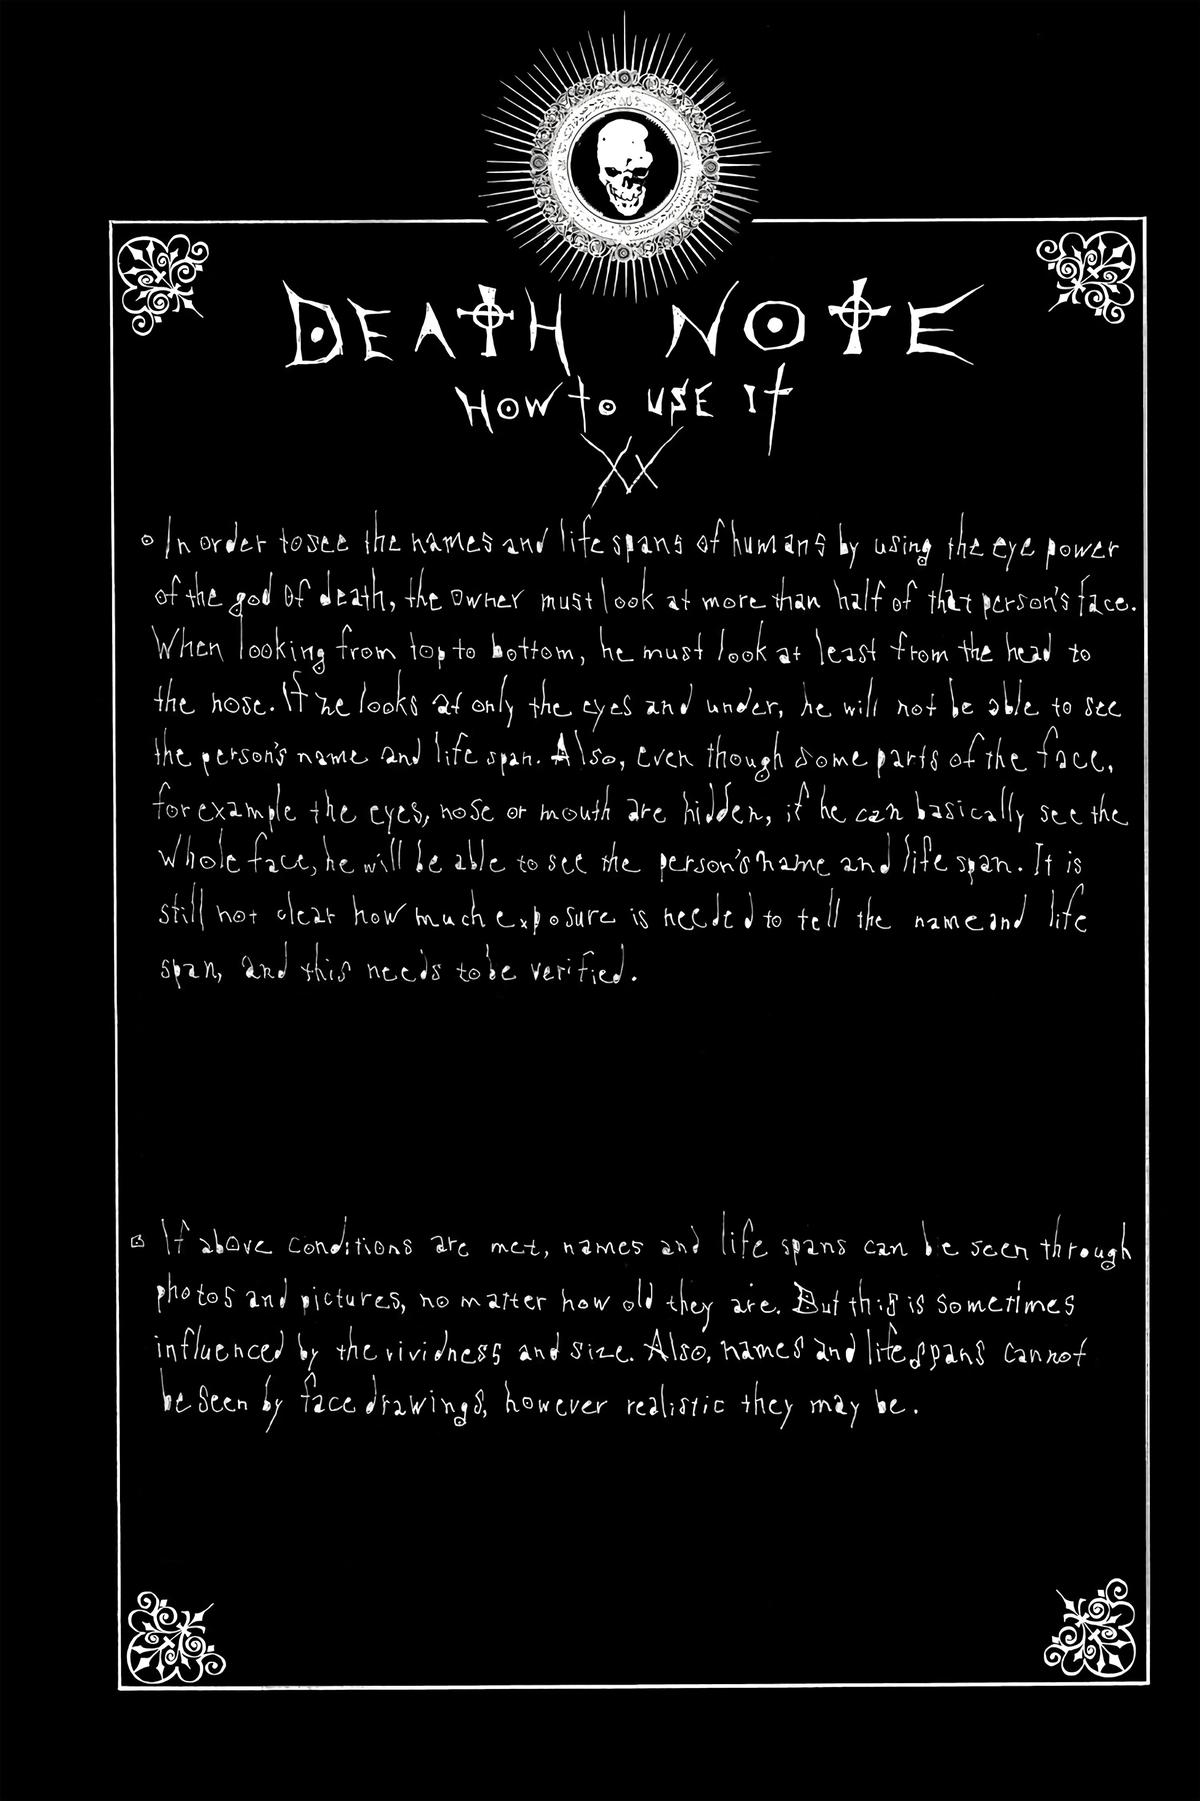 DEATH NOTE
HOW to USE IT
XX
In order to see the names and life spans of humans by using the eye power
of the god of death, the owner must look at more than half of that person's face.
When looking from top to bottom, he must look at least from the head to
the nose. If he looks at only the eyes and under, he will not be able to see
the person's name and life span. Also, even though some parts of the face,
for example the eyes, nose or mouth are hidden, if he can basically see the
whole face, he will be able to see the person's name and life span. It is
still not clear how much exposure is needed to tell the name and life
span, and this needs to be verified.
If above conditions are met, names and life spans can be seen through
photos and pictures, no matter how old they are. But this is sometimes
influenced by the vividness and size. Also, names and life spans cannot
be seen by face drawings, however realistic they may be.